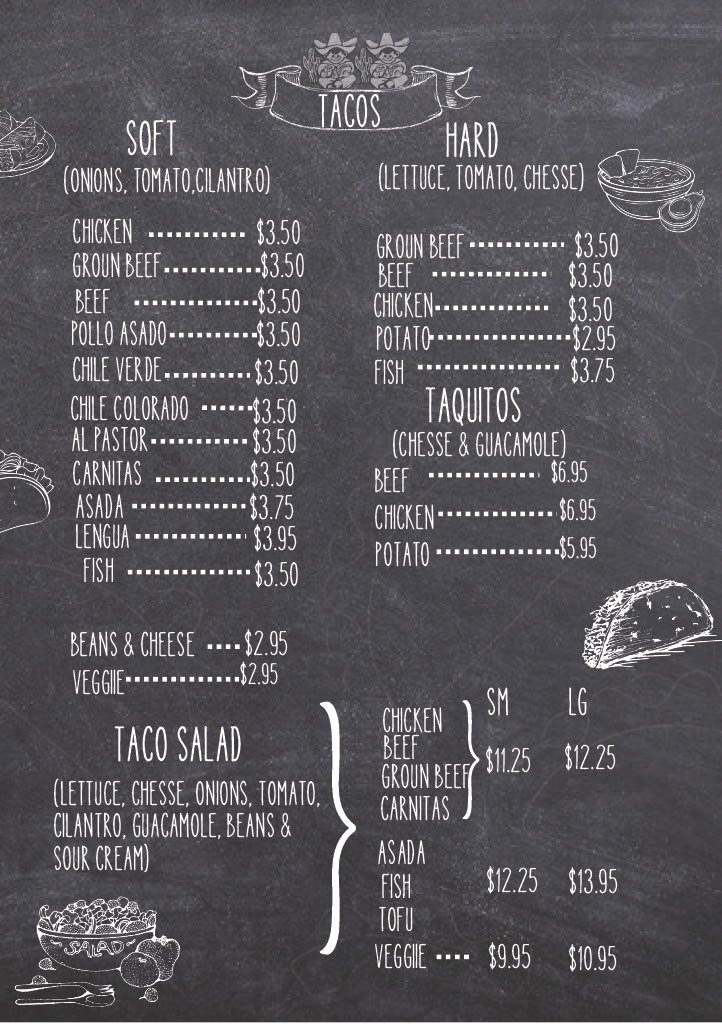 TACOS
SOFT
(ONIONS, TOMATO,CILANTRO)
CHICKEN $3.50
GROUN BEEF $3.50
BEEF $3.50
POLLO ASADO $3.50
CHILE VERDE $3.50
CHILE COLORADO $3.50
AL PASTOR $3.50
CARNITAS $3.50
ASADA $3.75
LENGUA $3.95
FISH $3.50
BEANS & CHEESE $2.95
VEGGIIE $2.95
HARD
(LETTUCE, TOMATO, CHESSE)
GROUN BEEF $3.50
BEEF $3.50
CHICKEN $3.50
POTATO $2.95
FISH $3.75
TAQUITOS
(CHESSE & GUACAMOLE)
BEEF $6.95
CHICKEN $6.95
POTATO $5.95
TACO SALAD
(LETTUCE, CHESSE, ONIONS, TOMATO,
CILANTRO, GUACAMOLE, BEANS &
SOUR CREAM)
SALAD
SM LG
CHICKEN
BEEF
GROUN BEEF
CARNITAS
$11.25 $12.25
ASADA
FISH $12.25 $13.95
TOFU
VEGGIIE $9.95 $10.95